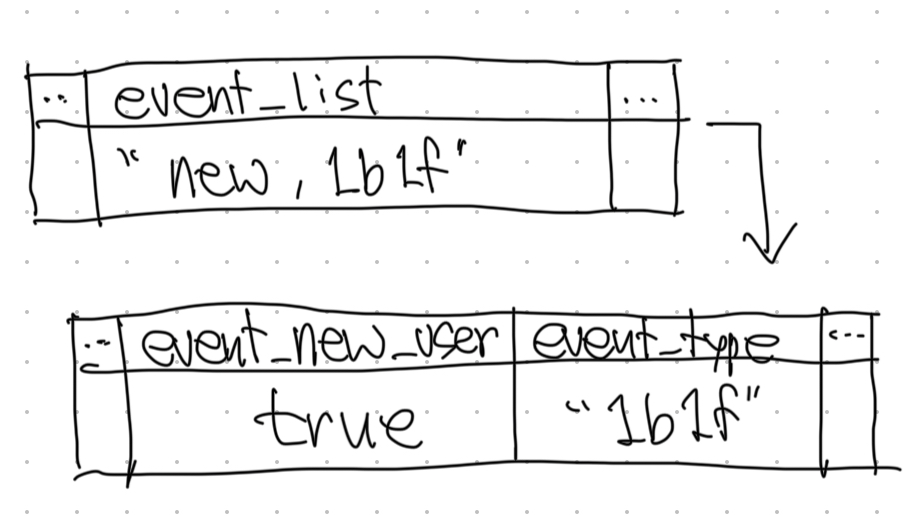 ... event_list ...
"new, 1b1f"
... event_new_user event_type ...
true "1b1f"